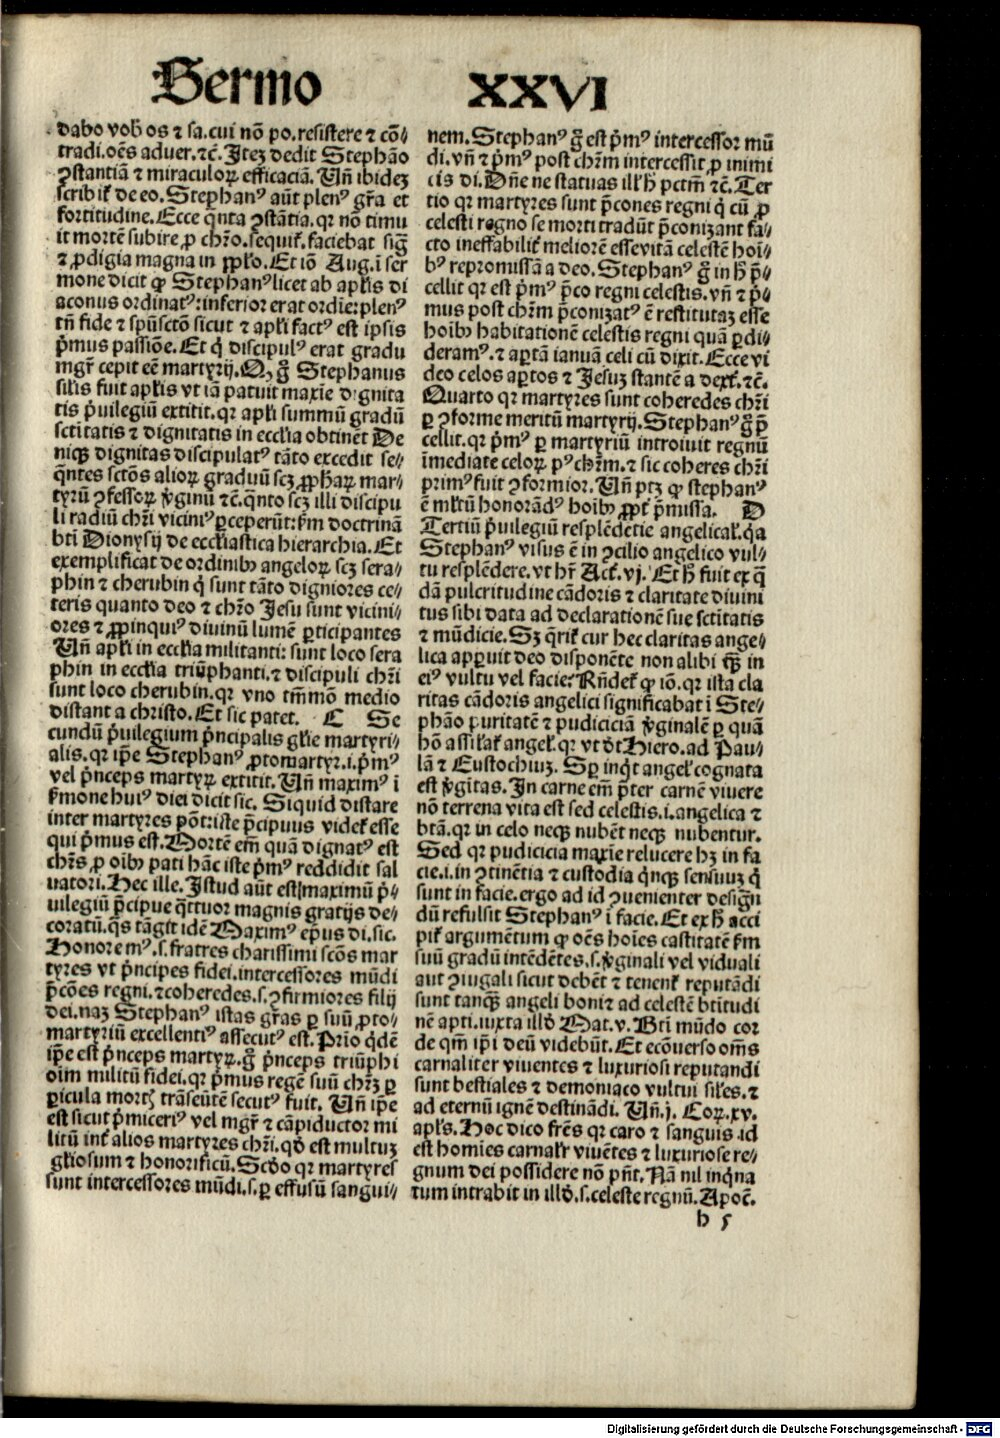 Sermo XXVI
dabo vob̄ os ⁊ sa. cui nō po. resistere ⁊ cō⸗
tradi. oēs aduer. ⁊c̄. Itez dedit Stephāo
ꝯstantiā ⁊ miraculoꝝ efficaciā. Vn̄ ibidez
scribit̄ de eo. Stephanꝰ aūt plenꝰ gr̄a et
fortitudine. Ecce qͥnta ꝯstātia. qꝛ nō timu
it mortē subire ꝓ chr̄o. sequit̄. faciebat siḡ
⁊ ꝓdigia magna in ꝓpl̄o. Et iō Aug. ī ser
mone dicit ꝙ Stephanꝰ licet ab apl̄is di
aconus ordinatꝰ: inferior erat ordīe: plenꝰ
tn̄ fide ⁊ spūsctō sicut ⁊ apl̄i factꝰ est ipsis
p̄mus passiōe. Et qͥ discipulꝰ erat gradu
mgr̄ cepit eē martyrij. Q, g̊ Stephanus
sil̄is fuit apl̄is vt iā patuit maxīe dignita
tis p̄uilegiū extitit. qꝛ apl̄i summū gradū
sctītatis ⁊ dignitatis in eccl̄ia obtinēt De
niqꝫ dignitas discipulatꝰ tāto excedit se⸗
qn̄tes sctōs alioꝝ graduū scꝫ ꝓph̄aꝝ mar⸗
tyrū ꝯfessoꝝ v̄ginū ⁊c̄. qͣnto scꝫ illi discipu
li radiū chr̄i viciniꝰ ꝑceperūt: s̄m doctrinā
bt̄i Dionysij de eccl̄iastica hierarchia. Et
exemplificat de ordinibꝰ angeloꝝ scꝫ sera⸗
phin ⁊ cherubin qͥ sunt tāto digniores ce⸗
teris quanto deo ⁊ chr̄o Jesu sunt vicini⸗
ores ⁊ ꝓpinquiꝰ diuinū lumē ꝑticipantes
Vn̄ apl̄i in eccl̄ia militanti: sunt loco sera
phin in eccl̄ia triūphanti. ⁊ discipuli chr̄i
sunt loco cherubin. qꝛ vno tm̄mō medio
distant a christo. Et sic patet. C Se
cundū p̄uilegium p̄ncipalis gl̄ie martyri⸗
alis. qꝛ ip̄e Stephanꝰ ꝓtomartyr. i. p̄mꝰ
vel p̄nceps martyꝝ extitit. Vn̄ maximꝰ ī
s̄mone huiꝰ diei dicit sic. Siquid distare
inter martyres pōt: iste p̄cipuus videt̄ esse
qui p̄mus est. Mortē em̄ quā dignatꝰ est
chr̄s ꝓ oībꝰ pati hāc iste p̄mꝰ reddidit sal
uatori. Hec ille. Istud aūt est maximū p̄⸗
uilegiū p̄cipue qͣttuor magnis gratijs de⸗
coratū. qͣs tāgit idē Maximꝰ ep̄us di. sic.
Honoremꝰ. s. fratres charissimi sctōs mar
tyres vt p̄ncipes fidei. intercessores mūdi
p̄cōes regni. ⁊ coheredes. s. ꝯfirmiores filij
dei. naꝫ Stephanꝰ istas gr̄as ꝑ suū ꝓto⸗
martyriū excellentiꝰ assecutꝰ est. Prīo qͥdē
ip̄e est p̄nceps martyꝝ. g̊ p̄nceps triūphi
oīm militū fidei. qꝛ p̄mus regē suū chr̄ꝫ ꝑ
ꝑicula mortꝭ trāseūtē secutꝰ fuit. Vn̄ ip̄e
est sicut p̄miceriꝰ vel mgr̄ ⁊ cāpiductor mi
litū int̄ alios martyres chr̄i. qd̊ est multuꝫ
gl̄iosum ⁊ honorificū. Scd̊o qꝛ martyres
sunt intercessores mūdi. s. ꝑ effusū sangui⸗
nem. Stephanꝰ g̊ est p̄mꝰ intercessor mū
di. vn̄ ⁊ p̄mꝰ post chr̄m intercessit ꝓ inimi
cis di. Dn̄e ne statuas ill̄ h̄ pctm̄ ⁊c̄. Ter
tio qꝛ martyres sunt p̄cones regni qͥ cū ꝓ
celesti regno se morti tradūt p̄conizant fa⸗
cto ineffabilit̄ meliorē esse vitā celestē hoī⸗
bꝰ repromissā a deo. Stephanꝰ g̊ in h̄ p̄⸗
cellit qꝛ est p̄mꝰ p̄co regni celestis. vn̄ ⁊ p̄⸗
mus post chr̄m p̄conizatꝰ ē restitutaꝫ esse
hoībꝰ habitationē celestis regni quā ꝑdi⸗
deramꝰ. ⁊ aꝑtā ianuā celi cū dixit. Ecce vi
deo celos aꝑtos ⁊ Jesuꝫ stantē a dext̄. ⁊c̄.
Quarto qꝛ martyres sunt coheredes chr̄i
ꝑ ꝯforme meritū martyrij. Stephanꝰ g̊ p̄
cellit. qꝛ p̄mꝰ ꝑ martyriū introiuit regnū
īmediate celoꝝ pꝰ chr̄m. ⁊ sic coheres chr̄i
primꝰ fuit ꝯformior. Vn̄ ptꝫ ꝙ stephanꝰ
ē ml̄tū honorādꝰ hoībꝰ ꝓpt̄ p̄missa. D
Tertiū p̄uilegiū resplēdētie angelicaꝉ. qͥa
Stephanꝰ visus ē in ꝯcilio angelico vul⸗
tu resplēdere. vt hr̄ Act̄. vj. Et h̄ fuit ex qͣ
dā pulcritudine cādoris ⁊ claritate diuini
tus sibi data ad declarationē sue sctītatis
⁊ mūdicie. Sꝫ qͥrit̄ cur hec claritas ange⸗
lica apꝑuit deo disponēte non alibi qͣꝫ in
eiꝰ vultu vel facie? Rn̄det̄ ꝙ iō. qꝛ ista cla
ritas cādoris angelici significabat ī Ste⸗
phāo puritatē ⁊ pudiciciā v̄ginalē ꝑ quā
hō assil̄at̄ angeꝉ. qꝛ vt dt̄ Hiero. ad Pau⸗
lā ⁊ Eustochiuꝫ. Sꝑ inqͥt angeꝉ cognata
est v̄gītas. In carne em̄ p̄ter carnē viuere
nō terrena vita est sed celestis. i. angelica ⁊
btā. qꝛ in celo neqꝫ nubēt neqꝫ nubentur.
Sed qꝛ pudicicia maxīe relucere hꝫ in fa
cie. i. in ꝯtinētia ⁊ custodia qͥnqꝫ sensuuꝫ qͥ
sunt in facie. ergo ad id ꝯuenienter desiḡn
dū refulsit Stephanꝰ ī facie. Et ex h̄ acci
pit̄ argumētum ꝙ oēs hoīes castitatē s̄m
suū gradū intēdētes. s. v̄ginali vel viduali
aut ꝯiugali sicut debēt ⁊ tenent̄ reputādi
sunt tanqͣꝫ angeli boni ⁊ ad celestē btītudi
nē apti. iuxta illd̊ Mat. v. Bt̄i mūdo cor
de qm̄ ip̄i deū videbūt. Et ecōuerso om̄s
carnaliter viuentes ⁊ luxuriosi reputandi
sunt bestiales ⁊ demoniaco vultui sil̄es. ⁊
ad eternū ignē destinādi. Vn̄. j. Coꝝ. xv.
apl̄s. Hoc dico fr̄es qꝛ caro ⁊ sanguis. id
est homīes carnalr̄ viuētes ⁊ luxuriose re⸗
gnum dei possidere nō pn̄t. Nā nil inqͥna
tum intrabit in illd̊. s. celeste regnū. Apoc̄.
b 5
Digitalisierung gefördert durch die Deutsche Forschungsgemeinschaft - DFG